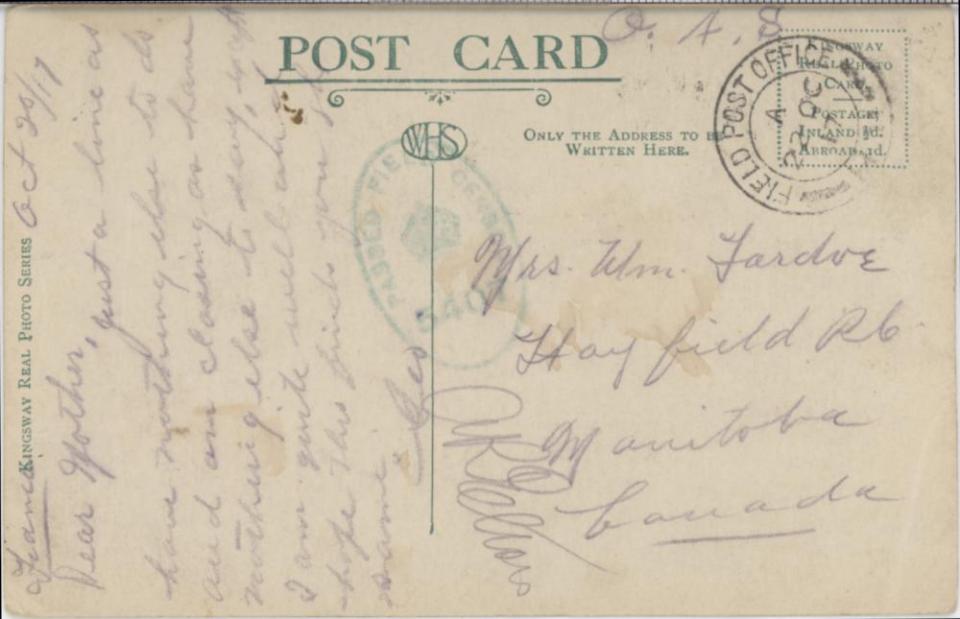 O. A. S
POST CARD
KINGSWAY
REAL PHOTO
CARD
POSTAGE:
INLAND ½d.
ABROAD 1d.
FIELD POST OFFICE
A
22 OC
17
WHS
ONLY THE ADDRESS TO BE
WRITTEN HERE.
PASSED FIELD CENSOR
540
KINGSWAY REAL PHOTO SERIES
France Oct 20/17
Dear Mother, just a line as
have nothing else to do
and am closing as have
nothing else to say, except
I am quite well and
hope this finds you the
same.
Les
Mrs. Wm. Fardoe
Hayfield P.O.
Manitoba
Canada